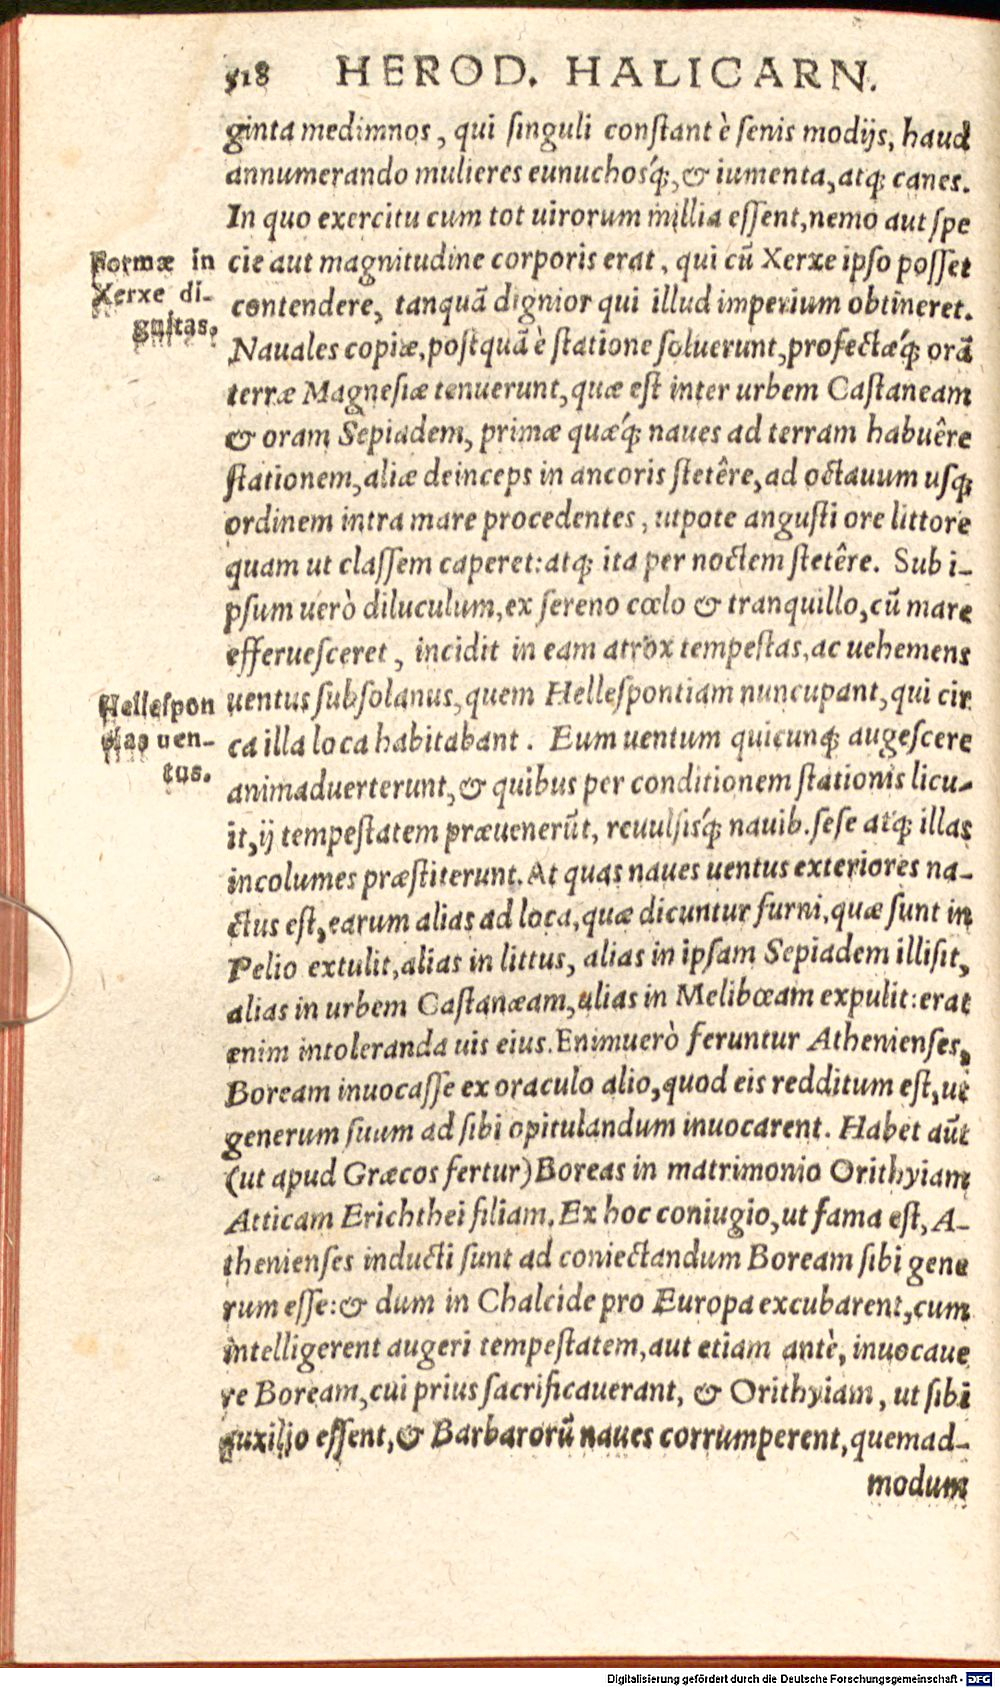 518 HEROD. HALICARN.
ginta medimnos, qui ſinguli conſtant è ſenis modijs, haud
annumerando mulieres eunuchosq́;, & iumenta, atq; canes.
In quo exercitu cum tot uirorum millia eſſent, nemo aut ſpe
cie aut magnitudine corporis erat, qui cũ Xerxe ipſo poſſet
contendere, tanquã dignior qui illud imperium obtineret.
Formæ in
Xerxe di-
gnitas.
Nauales copiæ, poſtquã è ſtatione ſoluerunt, profectæq́; orã
terræ Magneſiæ tenuerunt, quæ eſt inter urbem Caſtaneam
& oram Sepiadem, primæ quæq́; naues ad terram habuêre
ſtationem, aliæ deinceps in ancoris ſtetêre, ad octauum uſq;
ordinem intra mare procedentes, utpote anguſti ore littore
quam ut claſſem caperet: atq; ita per noctem ſtetêre. Sub i-
pſum uerò diluculum, ex ſereno cœlo & tranquillo, cũ mare
efferueſceret, incidit in eam atrox tempeſtas, ac uehemens
uentus ſubſolanus, quem Helleſpontiam nuncupant, qui cir
ca illa loca habitabant. Eum uentum quicunq; augeſcere
Helleſpon
tias uen-
tus.
animaduerterunt, & quibus per conditionem ſtationis licu-
it, ij tempeſtatem præuenerũt, reuulſisq́; nauib. ſeſe atq; illas
incolumes præſtiterunt. At quas naues uentus exteriores na-
ctus eſt, earum alias ad loca, quæ dicuntur furni, quæ ſunt in
Pelio extulit, alias in littus, alias in ipſam Sepiadem illiſit,
alias in urbem Caſtanæam, alias in Melibœam expulit: erat
enim intoleranda uis eius. Enimuerò feruntur Athenienſes,
Boream inuocaſſe ex oraculo alio, quod eis redditum eſt, ut
generum ſuum ad ſibi opitulandum inuocarent. Habet aũt
(ut apud Græcos fertur) Boreas in matrimonio Orithyiam
Atticam Erichthei filiam. Ex hoc coniugio, ut fama eſt, A-
thenienſes inducti ſunt ad coniectandum Boream ſibi gene
rum eſſe: & dum in Chalcide pro Europa excubarent, cum
intelligerent augeri tempeſtatem, aut etiam antè, inuocaue
re Boream, cui prius ſacrificauerant, & Orithyiam, ut ſibi
auxilio eſſent, & Barbarorũ naues corrumperent, quemad-
modum
Digitalisierung gefördert durch die Deutsche Forschungsgemeinschaft - DFG